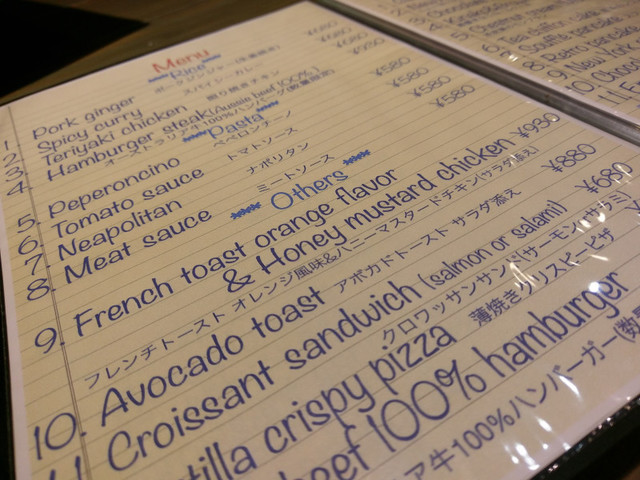 Menu
Rice
1. Pork ginger
ポークジンジャー(数量限定) ¥680
2. Spicy curry
スパイシーカレー ¥680
3. Teriyaki chicken
照り焼きチキン ¥680
4. Hamburger steak(Aussie beef 100%)
オーストラリア牛100%ハンバーグ(数量限定) ¥980
Pasta
5. Peperoncino
ペペロンチーノ ¥580
6. Tomato sauce
トマトソース ¥580
7. Neapolitan
ナポリタン ¥580
8. Meat sauce
ミートソース
Others
9. French toast orange flavor
& Honey mustard chicken ¥930
フレンチトースト オレンジ風味&ハニーマスタードチキン(サラダ添え)
10. Avocado toast
アボカドトースト サラダ添え ¥880
11. Croissant sandwich (salmon or salami) ¥680
クロワッサンサンド(サーモン
tilla crispy pizza
薄焼きクリスピーピザ
beef 100% hamburger
ア牛100%ハンバーガー(数